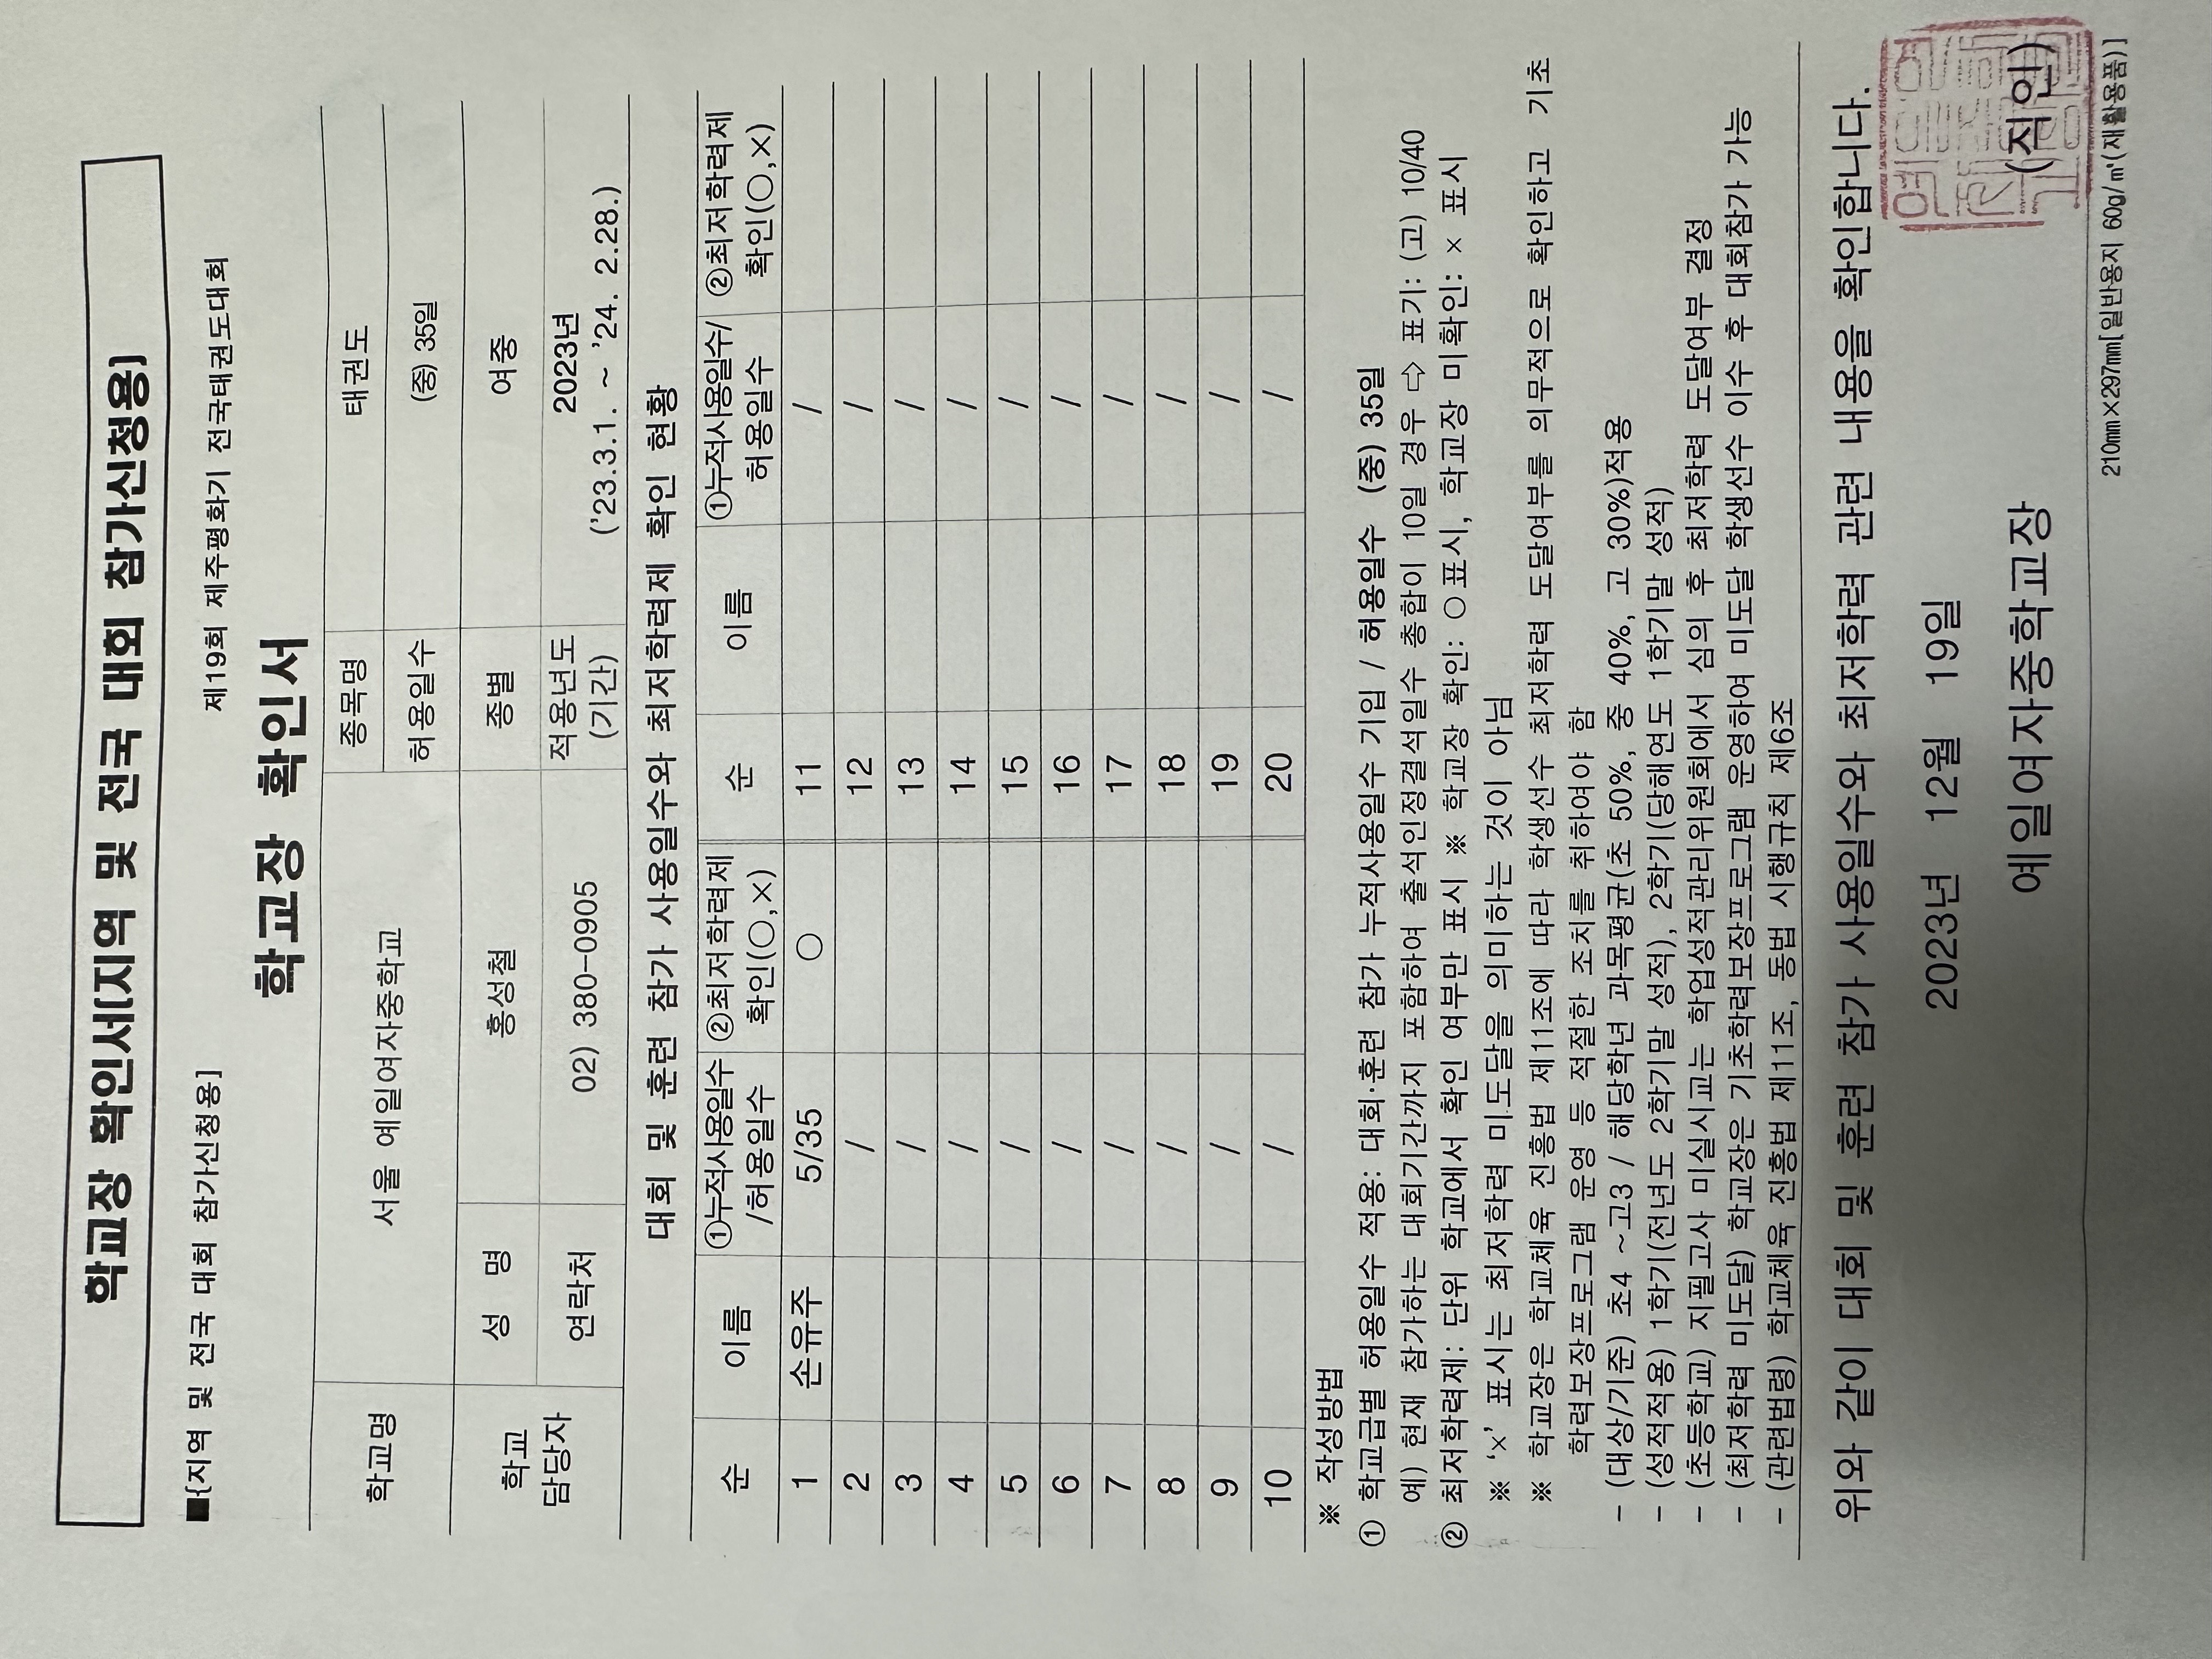 학교장 확인서(지역 및 전국 대회 참가신청용)
■{지역 및 전국 대회 참가신청용} 제19회 제주평화기 전국태권도대회
학교장 확인서
학교명 서울 예일여자중학교 종목명 태권도
허용일수 (중) 35일
학교 담당자 성 명 홍성철 종별 여중
연락처 02) 380-0905 적용년도 (기간) 2023년
('23.3.1. ~ '24. 2.28.)
대회 및 훈련 참가 사용일수와 최저학력제 확인 현황
순 이름 ①누적사용일수 /허용일수 ②최저학력제 확인(○,×) 순 이름 ①누적사용일수/ 허용일수 ②최저학력제 확인(○,×)
1 손유주 5/35 ○ 11 /
2 / 12 /
3 / 13 /
4 / 14 /
5 / 15 /
6 / 16 /
7 / 17 /
8 / 18 /
9 / 19 /
10 / 20 /
※ 작성방법
① 학교급별 허용일수 적용: 대회·훈련 참가 누적사용일수 기입 / 허용일수 (중) 35일
예) 현재 참가하는 대회기간까지 포함하여 출석인정결석일수 총합이 10일 경우 ⇨ 표기: (고) 10/40
② 최저학력제: 단위 학교에서 확인 여부만 표시 ※ 학교장 확인: ○표시, 학교장 미확인: × 표시
※ '×' 표시는 최저학력 미도달을 의미하는 것이 아님
※ 학교장은 학교체육 진흥법 제11조에 따라 학생선수 최저학력 도달여부를 의무적으로 확인하고 기초
학력보장프로그램 운영 등 적절한 조치를 취하여야 함
- (대상/기준) 초4 ~고3 / 해당학년 과목평균(초 50%, 중 40%, 고 30%)적용
- (성적적용) 1학기(전년도 2학기말 성적), 2학기(당해연도 1학기말 성적)
- (초등학교) 지필고사 미실시교는 학업성적관리위원회에서 심의 후 최저학력 도달여부 결정
- (최저학력 미도달) 학교장은 기초학력보장프로그램 운영하여 미도달 학생선수 이수 후 대회참가 가능
- (관련법령) 학교체육 진흥법 제11조, 동법 시행규칙 제6조
위와 같이 대회 및 훈련 참가 사용일수와 최저학력 관련 내용을 확인합니다.
2023년 12월 19일
예일여자중학교장 (직인)
210mm×297mm[일반용지 60g/㎡(재활용품)]